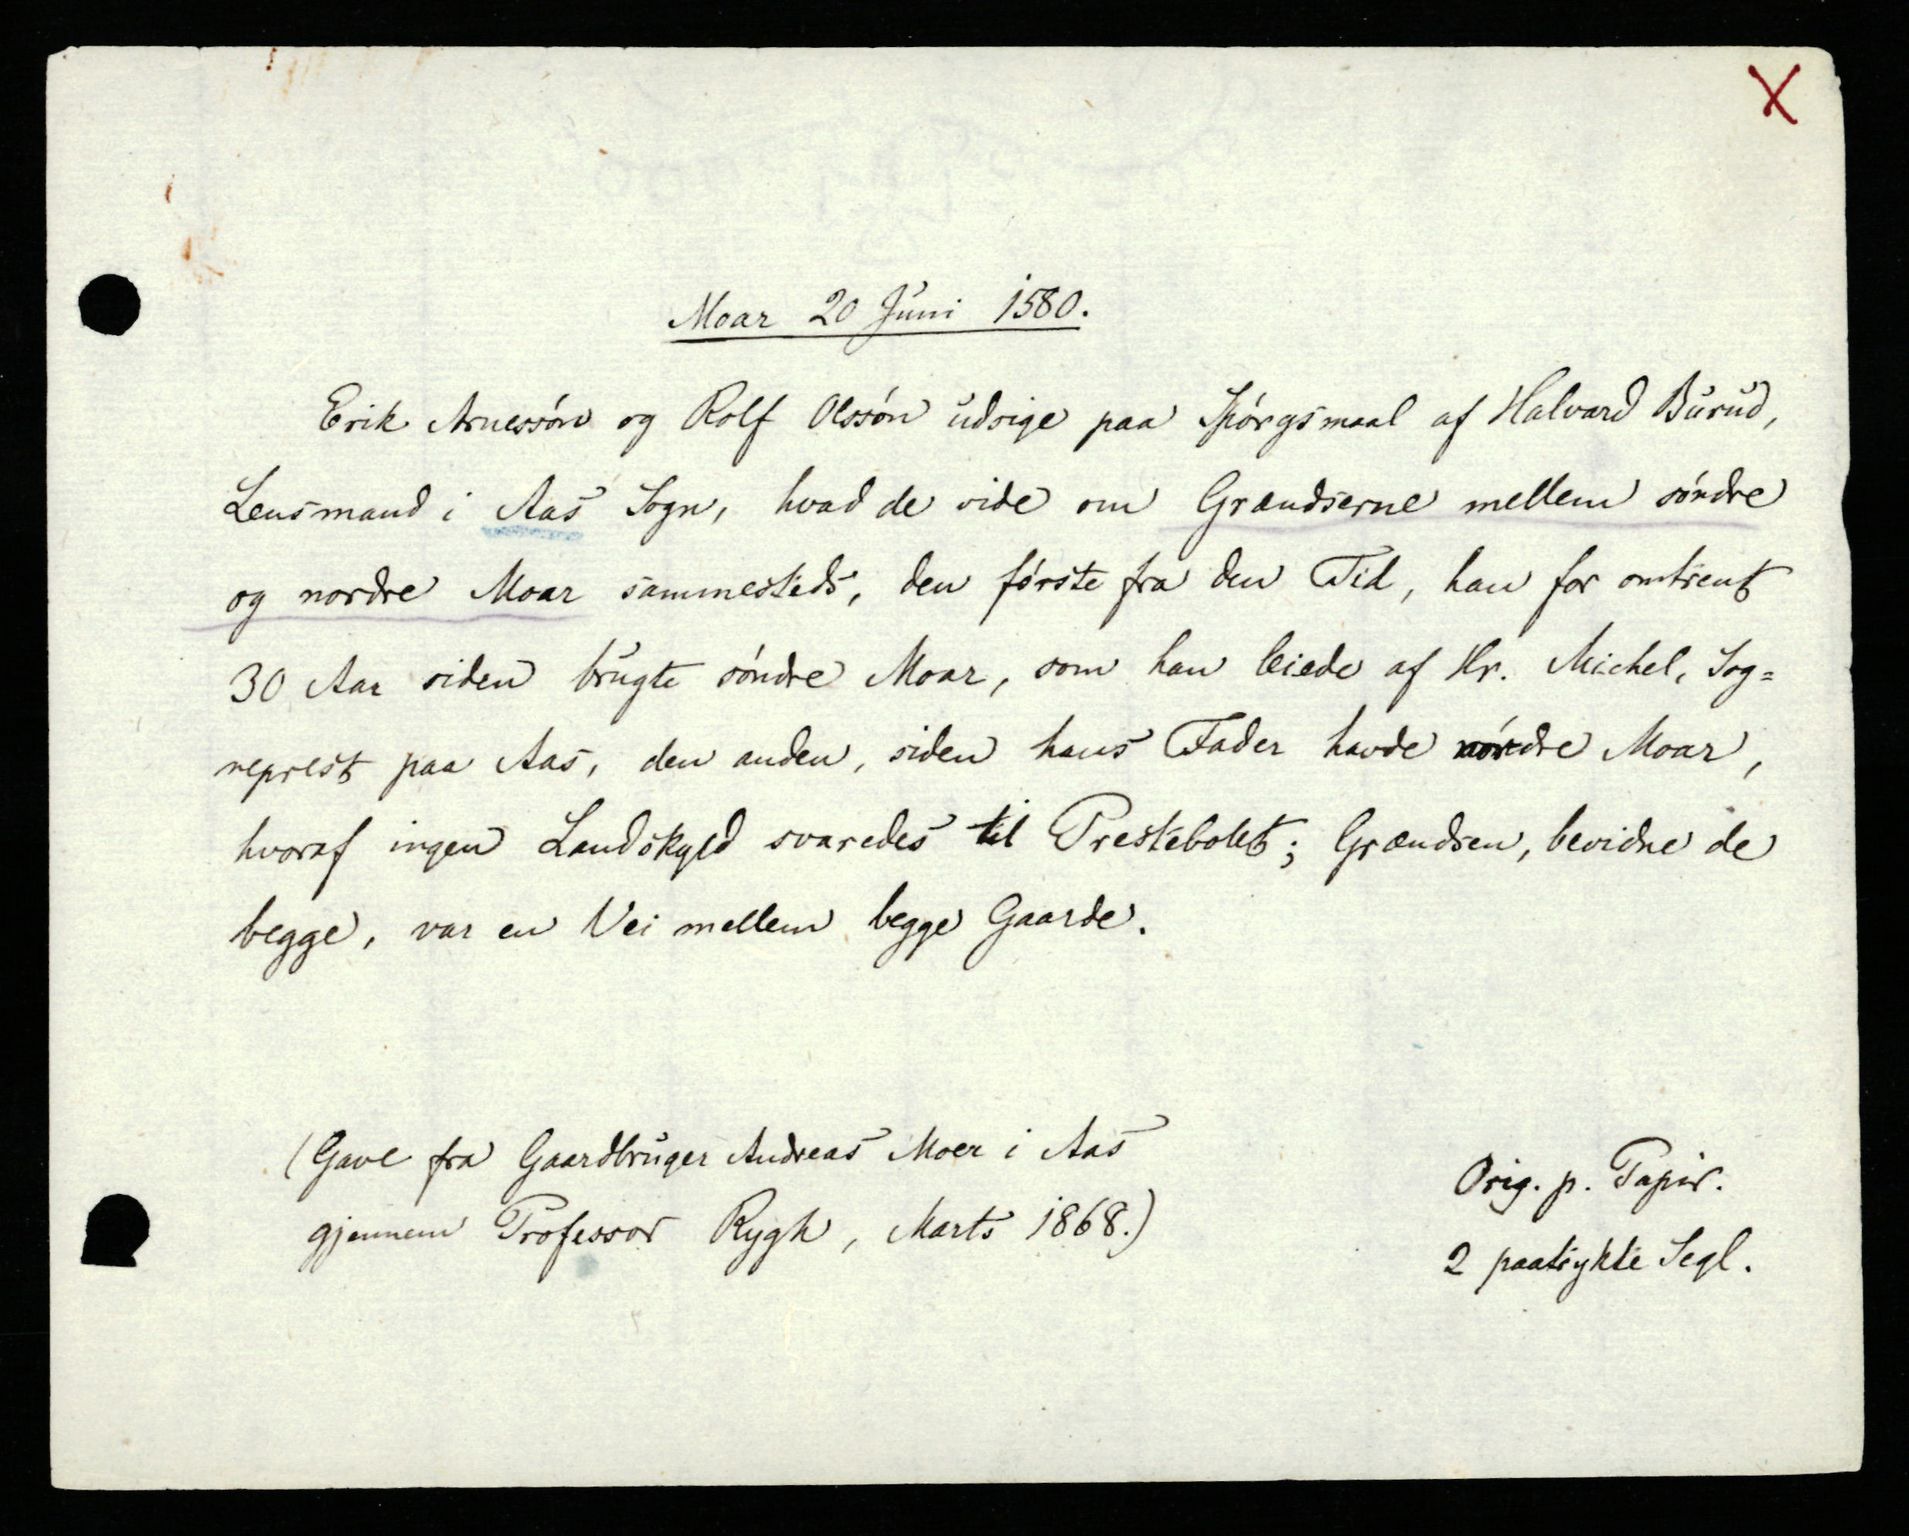 X
Moar 20 Juni 1580.
Erik Arnessón og Rolf Olssón udsige paa Spórgsmaal af Halvard Burud,
Lensmand i Aas Sogn, hvad de vide om Grændserne mellem sóndre
og nordre Moar sammesteds, den fórste fra den Tid, han for omtrent
30 Aar siden brugte sóndre Moar, som han leiede af Hr. Michel, Sog=
neprest paa Aas, den anden, siden hans Fader havde nordre Moar,
hvoraf ingen Landskyld svaredes til Prestebolet; Grændsen, bevidne de
begge, var en Vei mellem begge Gaarde.
(Gave fra Gaardbruger Andreas Moer i Aas
gjennem Professor Rygh, Marts 1868.)
Orig. p. Papir.
2 paatrykte Segl.